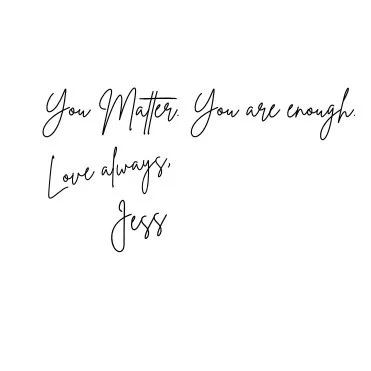 You Matter. You are enough.
Love always,
Jess